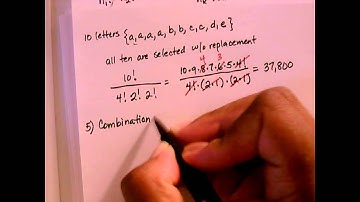 10 letters {a, a, a, a, b, b, c, c, d, e}
all ten are selected w/o replacement
10! / 4! 2! 2! = 10·9·8·7·6·5·4! / 4!·(2·1)·(2·1) = 37,800
4 3
5) Combination